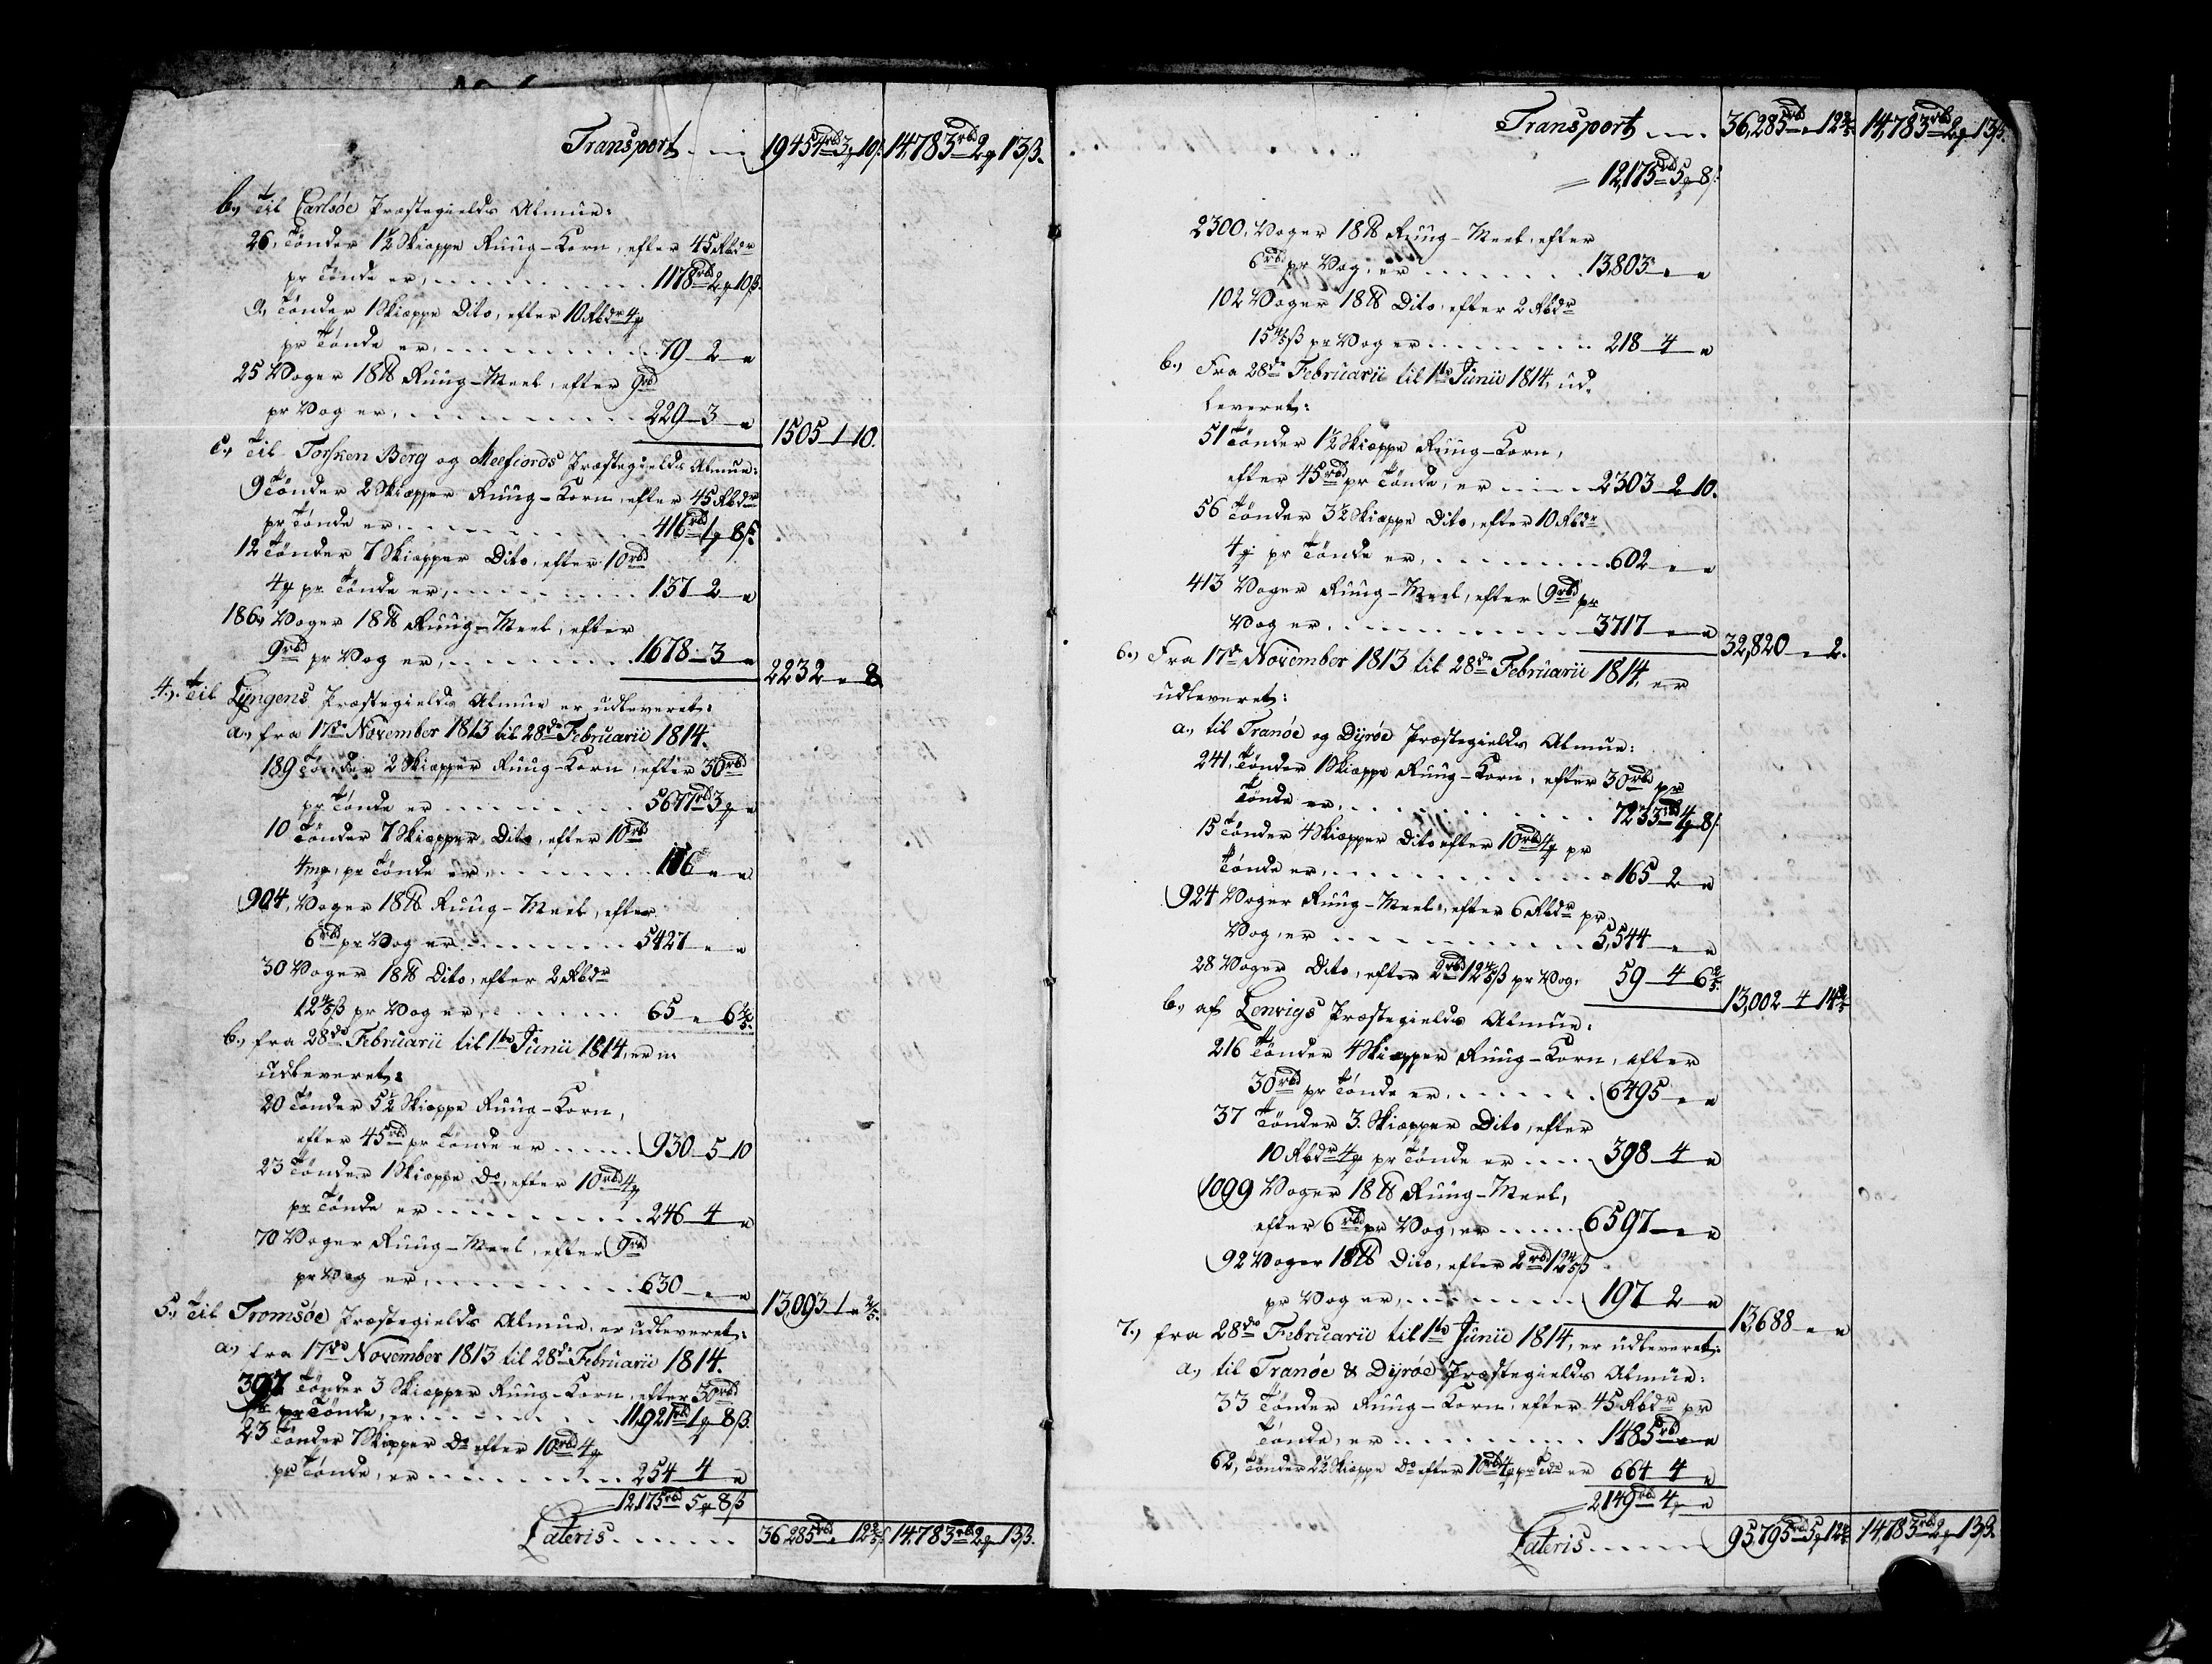 Transport . . . 19454rbd 3 ꝗ 10 ß. 14,783rbd 2 ꝗ 13 ß.
b., til Carlsöe Præstegields Almue:
26, Tönder 1½ Skiæppe Ruug-Korn, efter 45 Rbdr
pr Tönde er, . . . . . . . . . 1178rbd 2 ꝗ 10 ß.
9, Tönder 1 Skiæppe Dito, efter 10 Rbdr 4 ꝗ
pr Tönde er, . . . . . . . . . 79 - 2 - "
25 Voger 18 ℔ Ruug-Meel, efter 9rbd
pr Vog er, . . . . . . . . . 229 - 3 - " 1505 - 1 - 10.
c., Til Torsken Berg og Meefiords Præstegields Almue:
9 Tönder 2 Skiæpper Ruug-Korn, efter 45 Rbdr
pr Tönde er . . . . . . . . . 416rbd 1 ꝗ 8 ß.
12 Tönder 7 Skiæpper Dito, efter 10rbd
4 ꝗ pr Tönde er, . . . . . . . . . 137 - 2 - "
186, Voger 18 ℔ Ruug-Meel, efter
9rbd pr Vog er, . . . . . . . . . 1678 - 3 - " 2232 - " - 8
4., Til Lyngens Præstegields Almue er udleveret:
a., fra 17de November 1813 til 28de Februarii 1814.
189 Tönder 2 Skiæpper Ruug-Korn, efter 30rbd
pr Tönde er . . . . . . . . . 5677rbd 3 ꝗ "
10 Tönder 7 Skiæpper Dito, efter 10rbd
4 mꝗ, pr Tönde er, . . . . . . . . . 116 - " - "
904, Voger 18 ℔ Ruug-Meel, efter
6rbd pr Vog er . . . . . . . . . 5427 - " - "
30 Voger 18 ℔ Dito, efter 2 Rbdr
12 4/5 ß pr Vog er, . . . . . . 65 - " - 6 2/5.
b., fra 28de Februarii til 1te Junii 1814, er
udleveret:
20 Tönder 5½ Skiæppe Ruug-Korn,
efter 45rbd pr Tönde er . . . . . 930 - 5 - 10
23 Tönder 1 Skiæppe Do, efter 10rbd 4 ꝗ
pr Tönde er . . . . . . . . . 246 - 4 - "
70 Voger Ruug-Meel, efter 9rbd
pr Vog er, . . . . . . . . . 630 - " - " 13,093 - 1 - " 2/5.
5., Til Tromsöe Præstegields Almue, er udleveret:
a., fra 17de November 1813 til 28de Februarii 1814.
397 Tönder 3 Skiæpper Ruug-Korn, efter 30rbd
pr Tönde, er . . . . . . . . . 11,921rbd 1 ꝗ 8 ß.
23 Tönder 7 Skiæpper Do efter 10rbd 4 ꝗ
pr Tönde, er . . . . . . . . . 254 - 4 - "
12,175rbd 5 ꝗ 8 ß
Lateris . . . . . . 36,285rbd " 12 2/5 ß. 14,783rbd 2 ꝗ 13 ß.
Transport . . . . 36,285rbd " 12 2/5. 14,783rbd 2 ꝗ 13 ß.
12,175rbd 5 ꝗ 8 ß.
2300, Voger 18 ℔ Ruug-Meel, efter
6rbd pr Vog, er . . . . . . . . 13803 - " - "
102 Voger 18 ℔ Dito, efter 2 Rbdr
ß pr Vog er . . . . . . . . 218 - 4 - "
b., Fra 28de Februarii til 1te Junii 1814, ud-
leveret:
51 Tönder 1½ Skiæppe Ruug-Korn,
efter 45rbd pr Tönde, er . . . . . 2303 - 2 - 10.
56 Tönder 3½ Skiæppe Dito, efter 10 Rbdr
4 ꝗ pr Tönde er, . . . . . . . . 602 - " - "
413 Voger Ruug-Meel, efter 9rbd pr
Vog er, . . . . . . . . . 3717 - " - " 32,820 - " - 2.
6., Fra 17de November 1813 til 28de Februarii 1814, er
udleveret:
a., til Tranöe og Dyröe Præstegields Almue:
241, Tönder 1 Skiæppe Ruug-Korn, efter 30rbd pr
Tönde er, . . . . . . . . . 7233rbd 4 ꝗ 8 ß.
15 Tönder 4 Skiæpper Dito efter 10rbd 4 ꝗ pr
Tönde er, . . . . . . . . . 165 - 2 - "
924 Voger Ruug-Meel, efter 6 Rbdr pr
Vog, er . . . . . . . . . 5,544 - " - "
28 Voger Dito, efter 2rbd 12 4/5 ß pr Vog, 59 - 4 - 6 2/5. 13,002 - 4 - 14 2/5
b., af Lenvigs Præstegields Almue:
216 Tönder 4 Skiæpper Ruug-Korn, efter
30rbd pr Tönde er, . . . . . . . 6495 - " - "
37 Tönder 3. Skiæpper Dito, efter
10 Rbdr 4 ꝗ pr Tönde er . . . . 398 - 4 - "
1099 Voger 18 ℔ Ruug-Meel,
efter 6rbd pr Vog, er . . . . . 6597 - " - "
92 Voger 18 ℔ Dito, efter 2rbd 12 4/5 ß
pr Vog er, . . . . . . . . . 197 - 2 - " 13,688 - " - "
7., fra 28de Februarii til 1te Junii 1814, er udleveret:
a., til Tranöe & Dyröe Præstegields Almue:
33 Tönder Ruug-Korn, efter 45 Rbdr pr
Tönde, er . . . . . . . . . 1485rbd " "
62, Tönder 2½ Skiæppe Do efter 10rbd 4 ꝗ pr Tde er 664 - 4 - "
2149rbd 4 ꝗ "
Lateris . . . . . . 95,795rbd 5 ꝗ 12 4/5. 14,783rbd 2 ꝗ 13 ß.